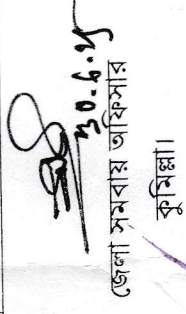 ৩০.৬.২৫
জেলা সমবায় অফিসার
কুমিল্লা।